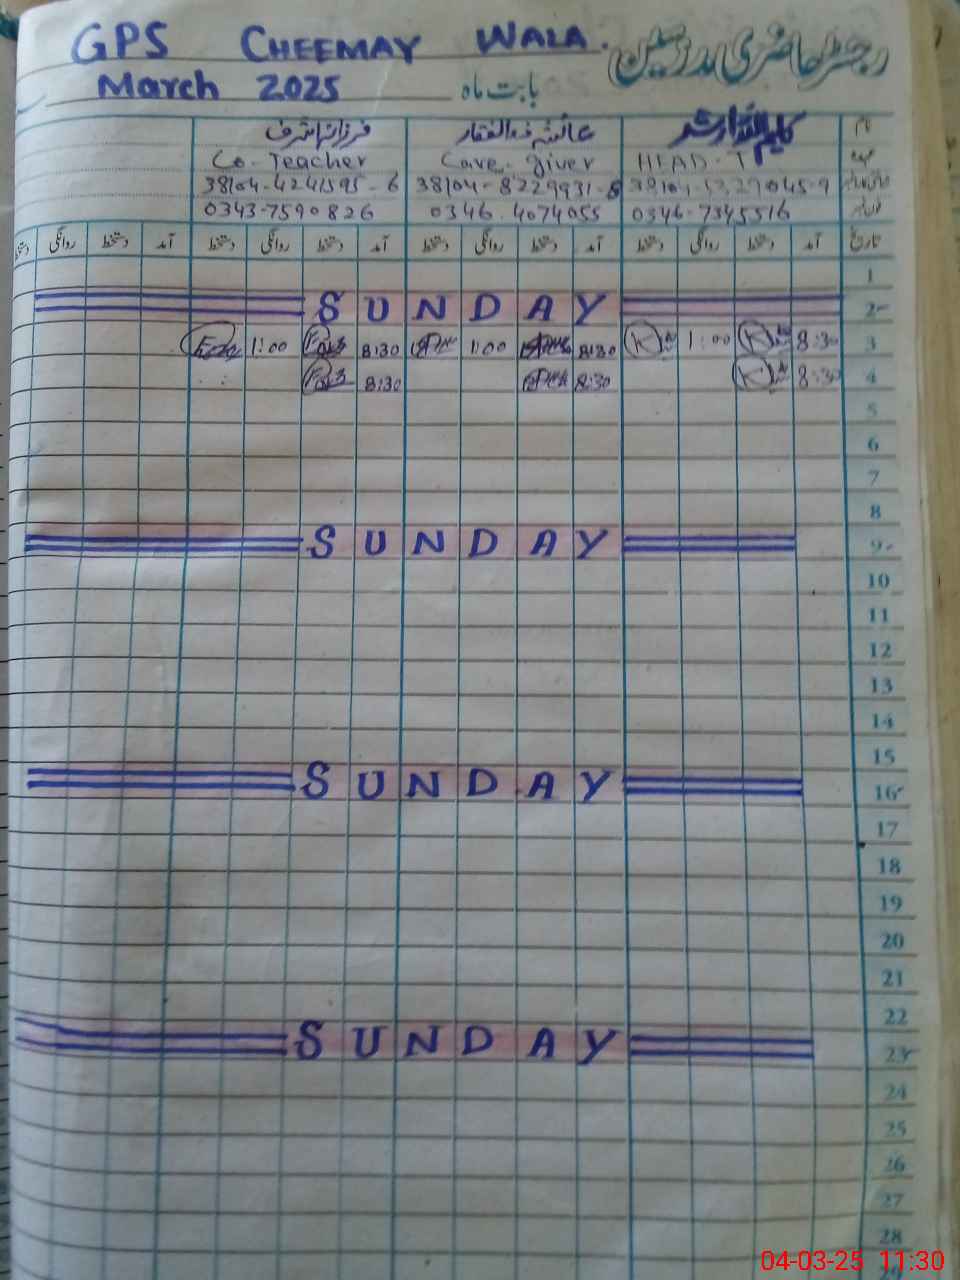 GPS CHEEMAY WALA.
رجسٹر حاضری مدرسین
March 2025 بابت ماہ
نام کلیم اللہ ارشد عائشہ ذوالفقار فرزانہ اشرف
عہدہ HEAD-T Care-giver Co-Teacher
38104-8229931-8 38104-4241595-6
0346-7345516 0346-4074055 0343-7590826
تاریخ آمد دستخط روانگی دستخط آمد دستخط روانگی دستخط آمد دستخط روانگی دستخط آمد دستخط روانگی دستخط
1
2 SUNDAY
3 8:30 1:00 8:30 1:00 8:30 1:00
4 8:30 8:30 8:30
5
6
7
8
9 SUNDAY
10
11
12
13
14
15
16 SUNDAY
17
18
19
20
21
22
23 SUNDAY
24
25
26
27
28
29
04-03-25 11:30